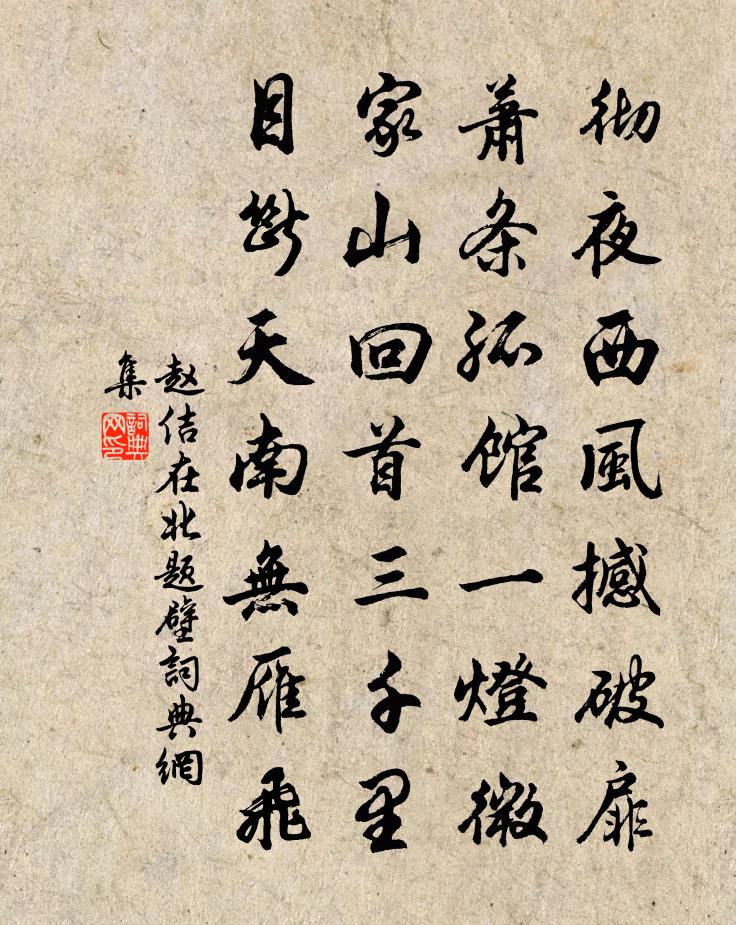 彻夜西風撼破扉
蕭条孤館一燈微
家山回首三千里
目斷天南無雁飛
赵佶在北题壁詞典網
集
詞典
网印